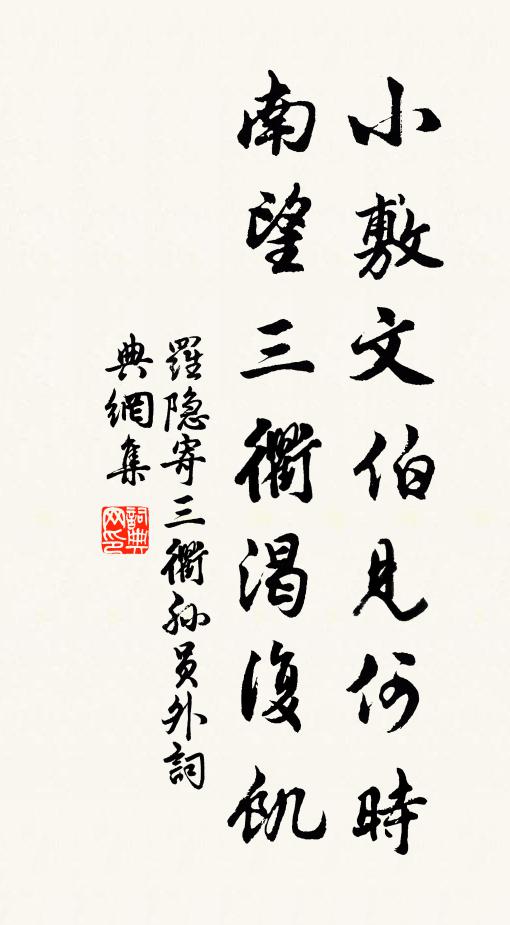 小敷文伯見何時
南望三衢渴復飢
羅隐寄三衢孙員外詞
典網集
詞典网印